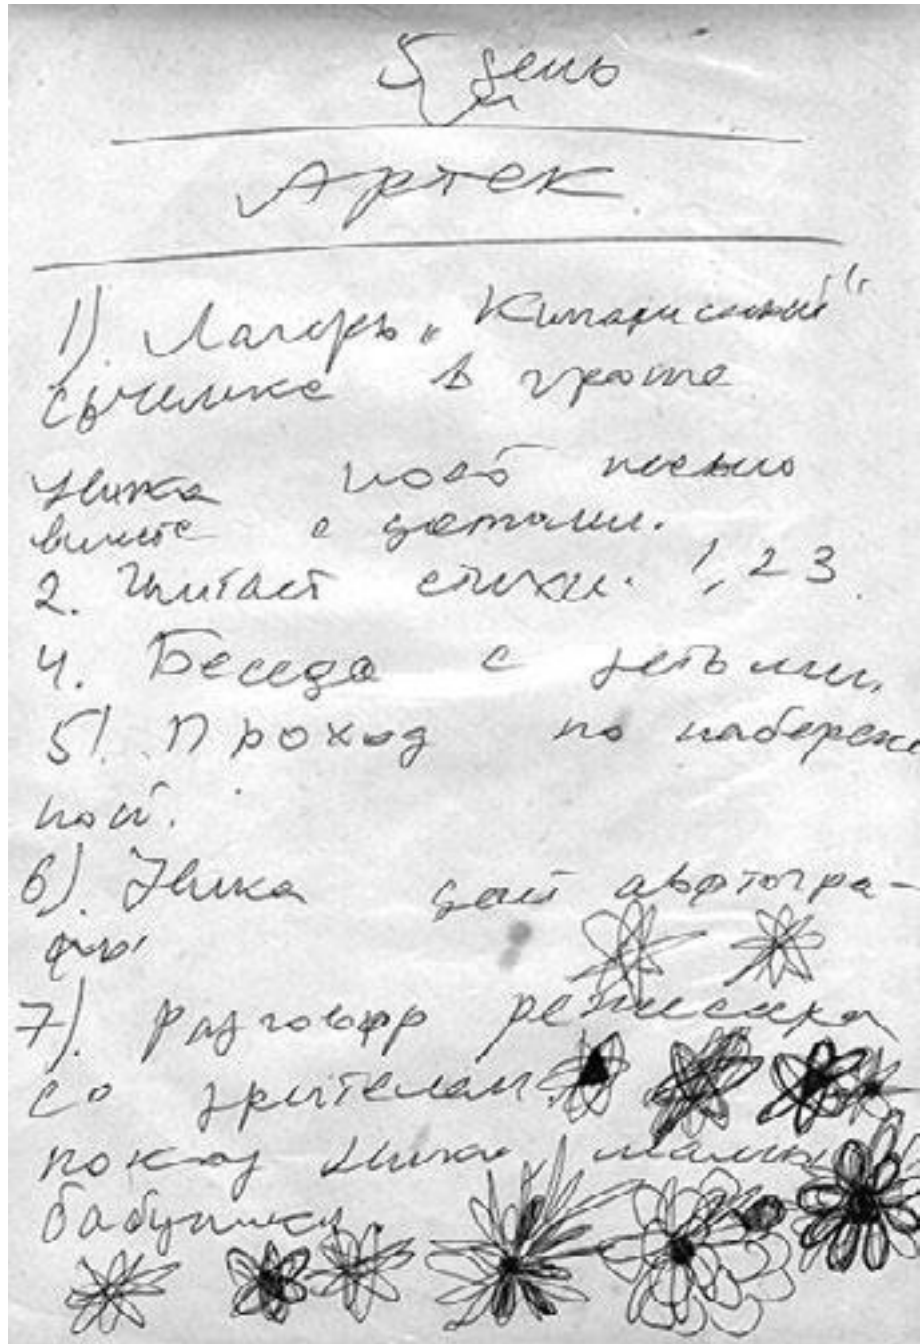 5 день
Артек
1). Лагерь „Кипарисный"
съемка в гроте
Ника поёт песню
вместе с детьми.
2. Читает стихи. 1, 2 3.
4. Беседа с детьми.
5). Проход по набереж
ной.
6). Ника даёт автогра-
фы
7). Разговор режиссера
со зрителем.
показ Ники, мамы,
бабушки.